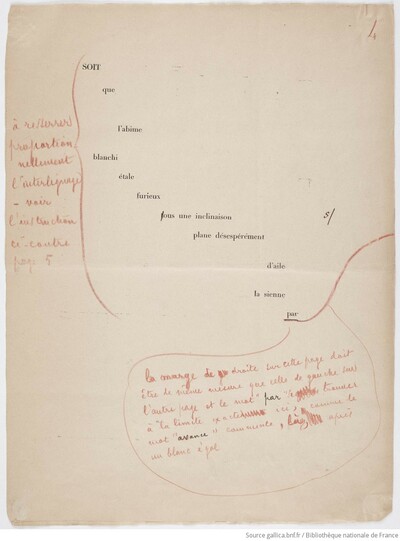 SOIT
que
l'abîme
blanchi
étale
furieux
sous une inclinaison s/
plane désespérément
d'aile
la sienne
par
à resserrer
proportion
nellement
l'interlignage
- voir
l'instruction
ci-contre
page 5
la marge de droite sur cette page doit
être de même mesure que celle de gauche sur
l'autre page et le mot "par" tomber
à la limite exacte ici, comme le
mot "avance" commence, là, après
un blanc égal
Source gallica.bnf.fr / Bibliothèque nationale de France